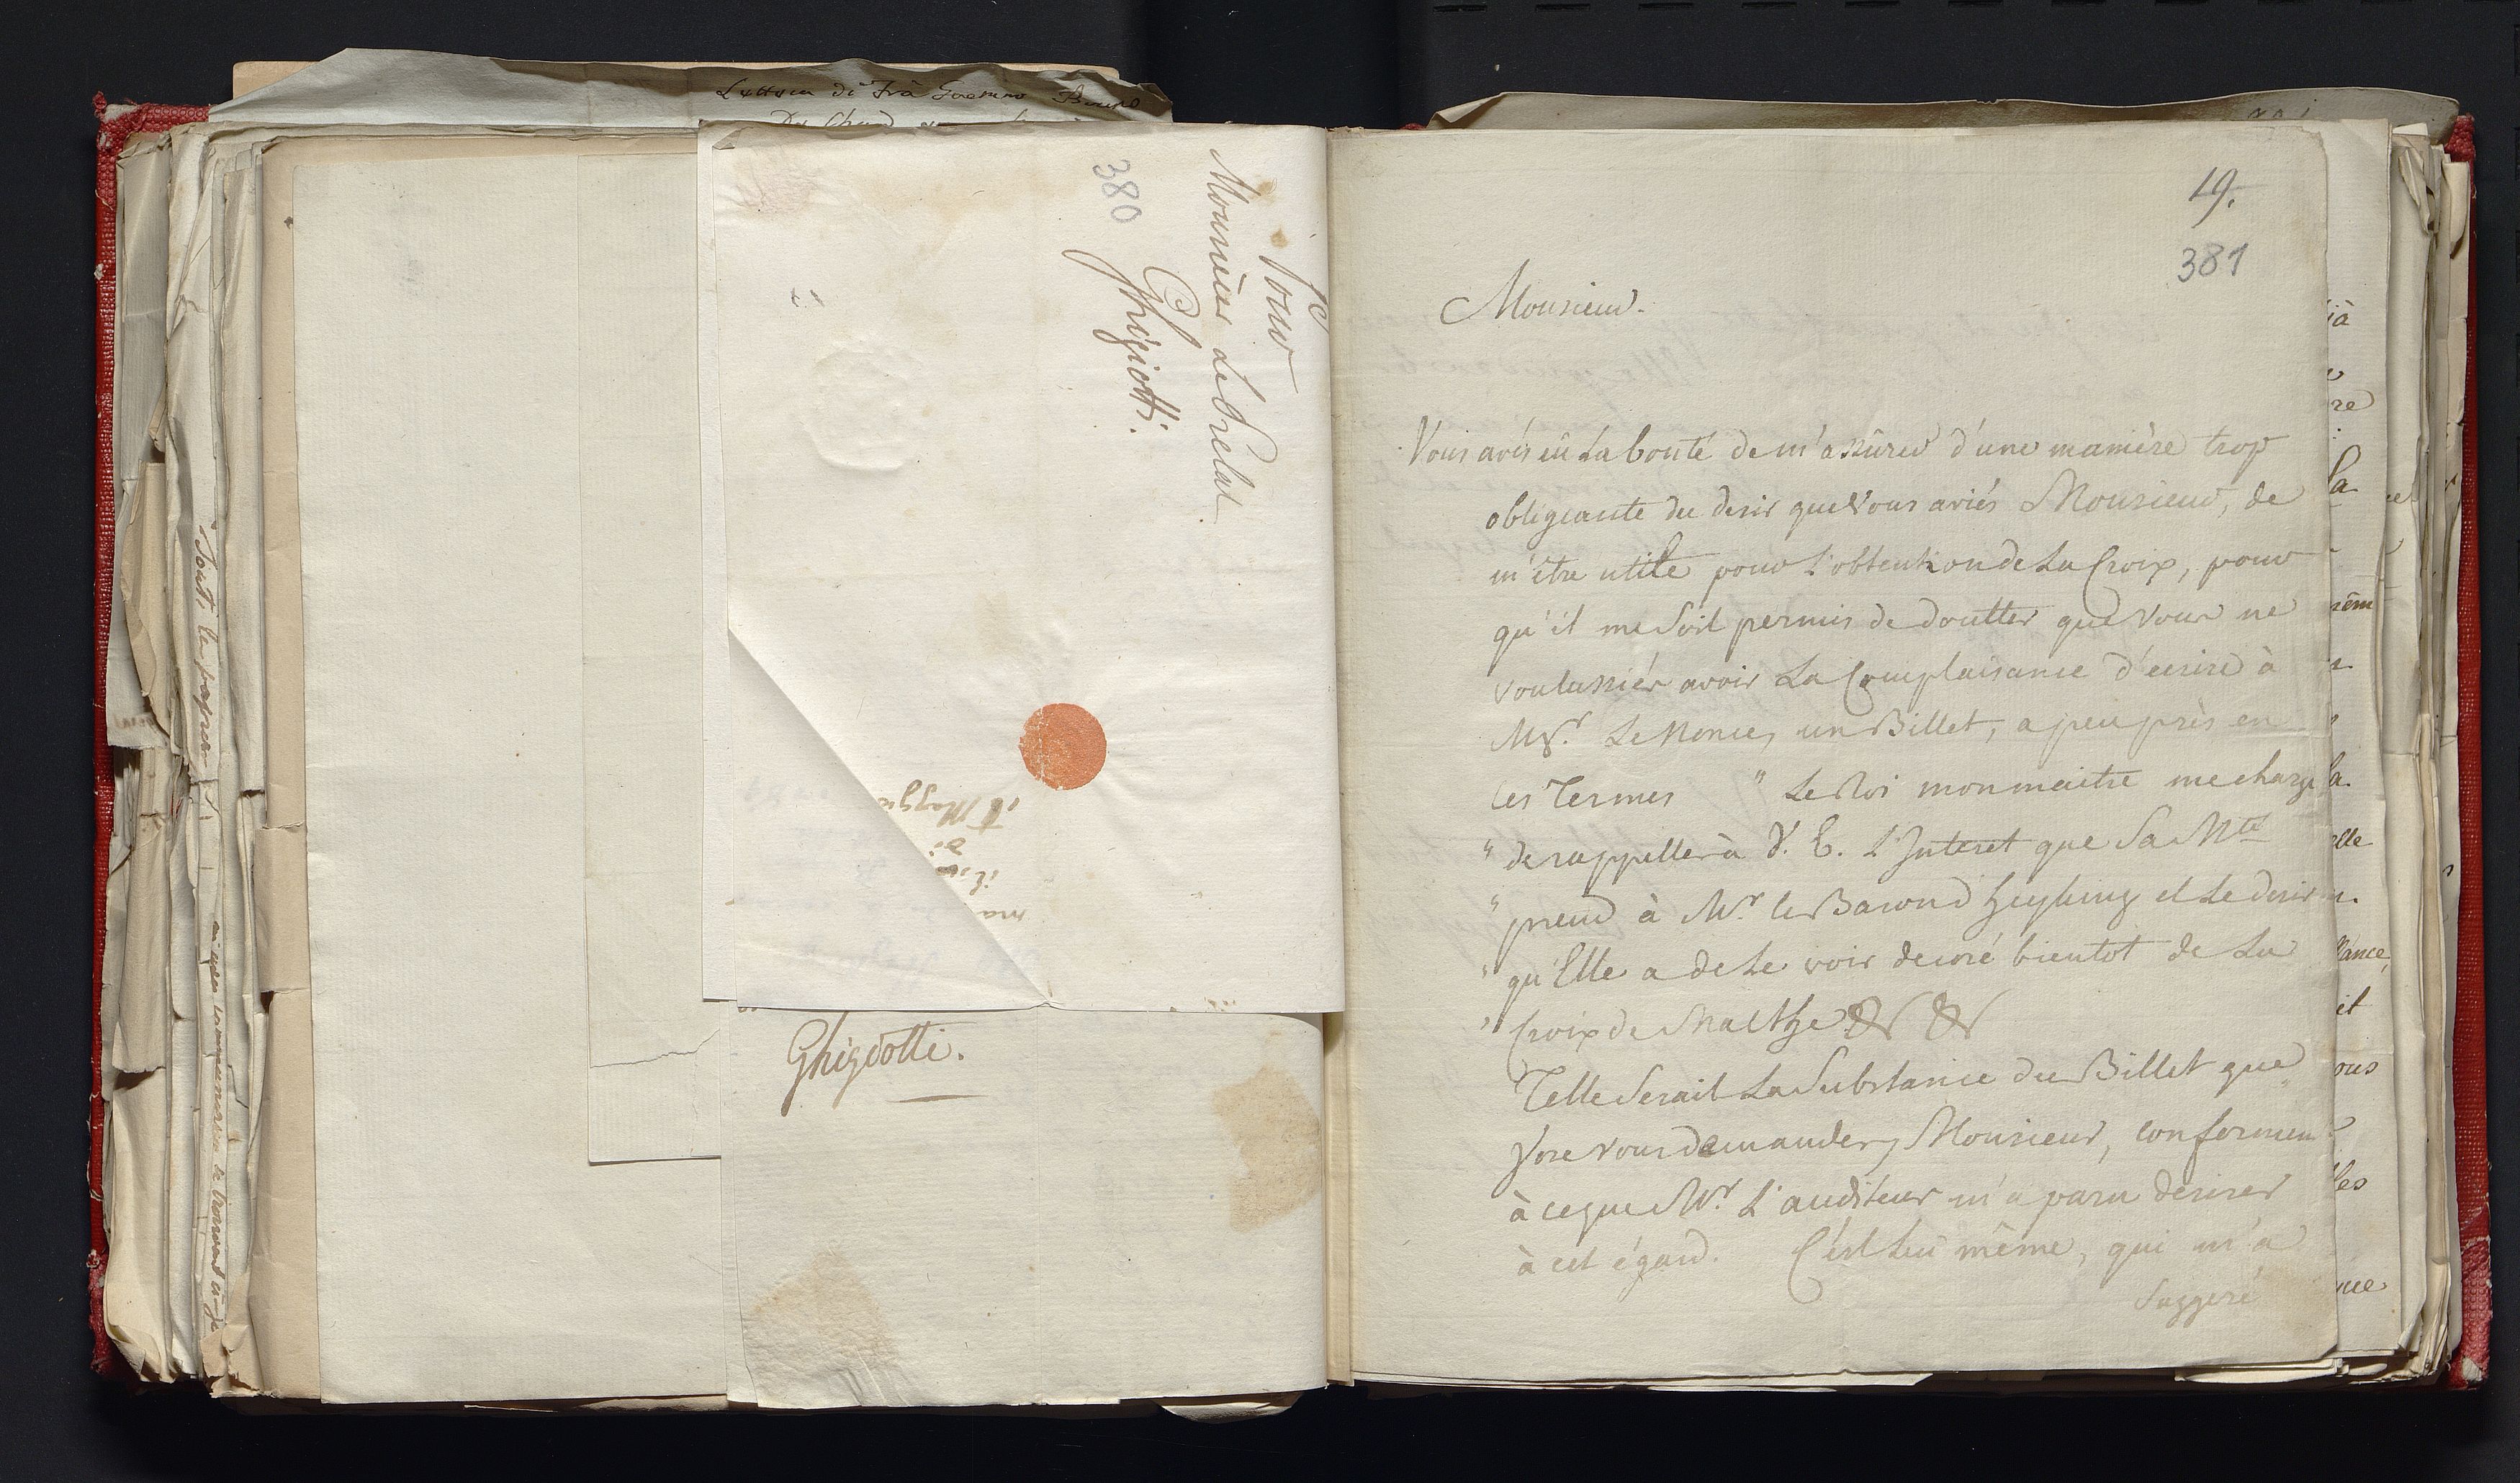 Pour
Monsieur le Prelat
Ghigiotti.
380
Ghigiotti.
19.
381
Monsieur.
Vous avés eû la bonté de m'assûrer d'une manière trop
obligeante du desir que Vous aviés Monsieur, de
m'être utile pour l'obtention de La Croix, pour
qu'il me soit permis de doutter que Vous ne
voulussiés avoir La Complaisance d'ecrire à
Mgr. Le Nonce, un Billet, a peu près en
ces Termes " Le Roi mon maitre me charge
" de rappeller à V. E. L'Interet que Sa Mté
" prend à Mr le Baron d'Heyking et Le desir
" qu'Elle a de Le voir decoré bientot de La
" Croix de Malthe & &
Telle Serait La Substance du Billet que
j'ose vous demander, Monsieur, conformem
à ce que Mr. L'auditeur m'a paru desirer
à cet égard. C'est Lui même, qui m'a
Suggeré